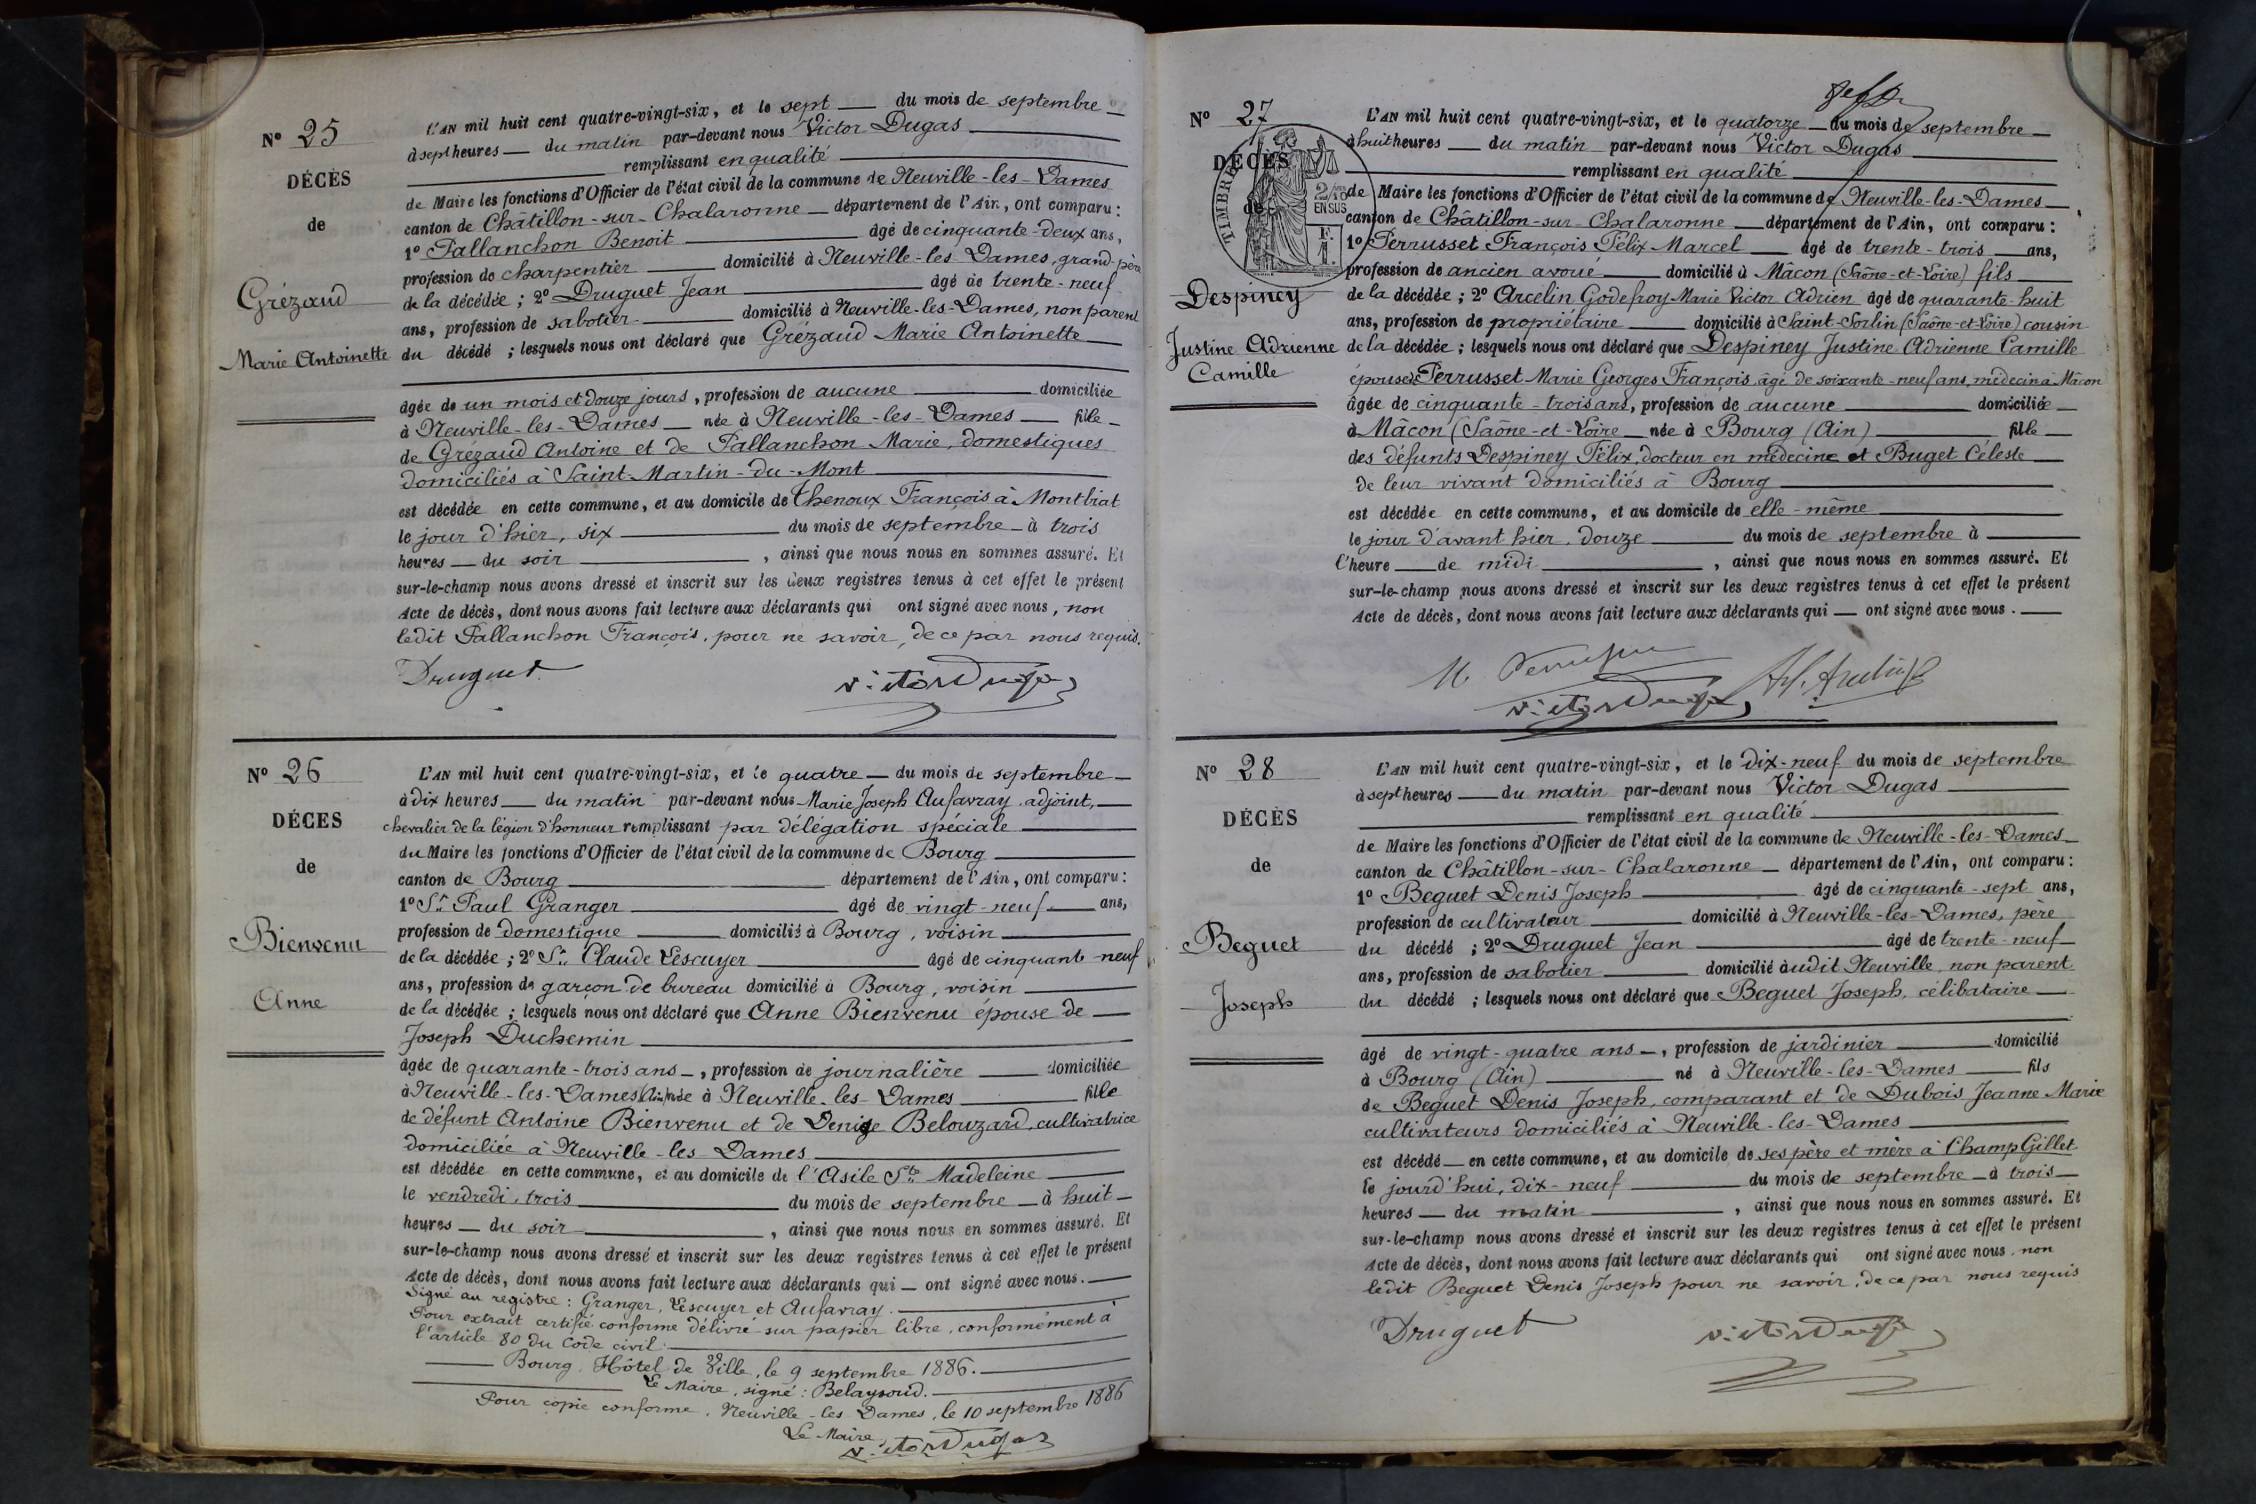 N° 25
DÉCÈS
de
Grézaud
Marie Antoinette
L'AN mil huit cent quatre-vingt-six, et le sept du mois de septembre
à sept heures du matin par-devant nous Victor Dugas
remplissant en qualité
de Maire les fonctions d'Officier de l'état civil de la commune de Neuville-les-Dames
canton de Châtillon-sur-Chalaronne département de l'Ain, ont comparu :
1° Pallanchon Benoit âgé de cinquante-deux ans,
profession de charpentier domicilié à Neuville-les-Dames, grand-père
de la décédée ; 2° Druguet Jean âgé de trente-neuf
ans, profession de sabotier domicilié à Neuville-les-Dames, non parent
du décédé ; lesquels nous ont déclaré que Grézaud Marie Antoinette
âgée de un mois et douze jours, profession de aucune domiciliée
à Neuville-les-Dames née à Neuville-les-Dames fille
de Grézaud Antoine et de Pallanchon Marie, domestiques
domiciliés à Saint-Martin-du-Mont
est décédée en cette commune, et au domicile de Thenoux François à Montbiat
le jour d'hier, six du mois de septembre à trois
heures du soir, ainsi que nous nous en sommes assuré. Et
sur-le-champ nous avons dressé et inscrit sur les deux registres tenus à cet effet le présent
Acte de décès, dont nous avons fait lecture aux déclarants qui ont signé avec nous, non
ledit Pallanchon François, pour ne savoir, de ce par nous requis.
Druguet Victor Dugas
N° 26
DÉCES
de
Bienvenu
Anne
L'AN mil huit cent quatre-vingt-six, et le quatre du mois de septembre
à dix heures du matin par-devant nous Marie Joseph Aufavray adjoint,
chevalier de la légion d'honneur remplissant par délégation spéciale
du Maire les fonctions d'Officier de l'état civil de la commune de Bourg
canton de Bourg département de l'Ain, ont comparu :
1° Sr Paul Granger âgé de vingt-neuf ans,
profession de domestique domicilié à Bourg, voisin
de la décédée ; 2° Sr Claude Lescuyer âgé de cinquante-neuf
ans, profession de garçon de bureau domicilié à Bourg, voisin
de la décédée ; lesquels nous ont déclaré que Anne Bienvenu épouse de
Joseph Duchemin
âgée de quarante-trois ans, profession de journalière domiciliée
à Neuville-les-Dames (Ain) née à Neuville-les-Dames fille
de défunt Antoine Bienvenu et de Denise Belouzard, cultivatrice
domiciliée à Neuville-les-Dames
est décédée en cette commune, et au domicile de l'Asile Ste Madeleine
le vendredi, trois du mois de septembre à huit
heures du soir, ainsi que nous nous en sommes assuré. Et
sur-le-champ nous avons dressé et inscrit sur les deux registres tenus à cet effet le présent
Acte de décès, dont nous avons fait lecture aux déclarants qui ont signé avec nous.
Signé au registre : Granger, Lescuyer et Aufavray.
Pour extrait certifié conforme délivré sur papier libre, conformément à
l'article 80 du Code civil.
Bourg, Hôtel de Ville, le 9 septembre 1886.
Le Maire, signé : Belaysoud.
Pour copie conforme, Neuville-les-Dames, le 10 septembre 1886
Le Maire,
Victor Dugas
N° 27
DÉCÈS
de
TIMBRE
2/10 EN SUS
Despiney
Justine Adrienne
Camille
L'AN mil huit cent quatre-vingt-six, et le quatorze du mois de septembre
à huit heures du matin par-devant nous Victor Dugas
remplissant en qualité
de Maire les fonctions d'Officier de l'état civil de la commune de Neuville-les-Dames
canton de Châtillon-sur-Chalaronne département de l'Ain, ont comparu :
1° Perrusset François Félix Marcel âgé de trente-trois ans,
profession de ancien avoué domicilié à Mâcon (Saône-et-Loire) fils
de la décédée ; 2° Arcelin Godefroy Marie Victor Adrien âgé de quarante-huit
ans, profession de propriétaire domicilié à Saint-Sorlin (Saône-et-Loire) cousin
de la décédée ; lesquels nous ont déclaré que Despiney Justine Adrienne Camille
épouse de Perrusset Marie Georges François âgé de soixante-neuf ans, médecin à Mâcon
âgée de cinquante-trois ans, profession de aucune domiciliée
à Mâcon (Saône-et-Loire née à Bourg (Ain) fille
des défunts Despiney Félix, docteur en médecine et Buget Céleste
de leur vivant domiciliés à Bourg
est décédée en cette commune, et au domicile de elle-même
le jour d'avant hier, douze du mois de septembre à
l'heure de midi, ainsi que nous nous en sommes assuré. Et
sur-le-champ nous avons dressé et inscrit sur les deux registres tenus à cet effet le présent
Acte de décès, dont nous avons fait lecture aux déclarants qui ont signé avec nous.
M. Perrusset
Victor Dugas
N° 28
DÉCÈS
de
Beguet
Joseph
L'AN mil huit cent quatre-vingt-six, et le dix-neuf du mois de septembre
à sept heures du matin par-devant nous Victor Dugas
remplissant en qualité
de Maire les fonctions d'Officier de l'état civil de la commune de Neuville-les-Dames
canton de Châtillon-sur-Chalaronne département de l'Ain, ont comparu :
1° Beguet Denis Joseph âgé de cinquante-sept ans,
profession de cultivateur domicilié à Neuville-les-Dames, père
du décédé ; 2° Druguet Jean âgé de trente-neuf
ans, profession de sabotier domicilié audit Neuville, non parent
du décédé ; lesquels nous ont déclaré que Beguet Joseph, célibataire
âgé de vingt-quatre ans, profession de jardinier domicilié
à Bourg (Ain) né à Neuville-les-Dames fils
de Beguet Denis Joseph, comparant et de Dubois Jeanne Marie
cultivateurs domiciliés à Neuville-les-Dames
est décédé en cette commune, et au domicile de ses père et mère à Champ Gillet
le jourd'hui, dix-neuf du mois de septembre à trois
heures du matin, ainsi que nous nous en sommes assuré. Et
sur-le-champ nous avons dressé et inscrit sur les deux registres tenus à cet effet le présent
Acte de décès, dont nous avons fait lecture aux déclarants qui ont signé avec nous, non
ledit Beguet Denis Joseph pour ne savoir, de ce par nous requis
Druguet Victor Dugas